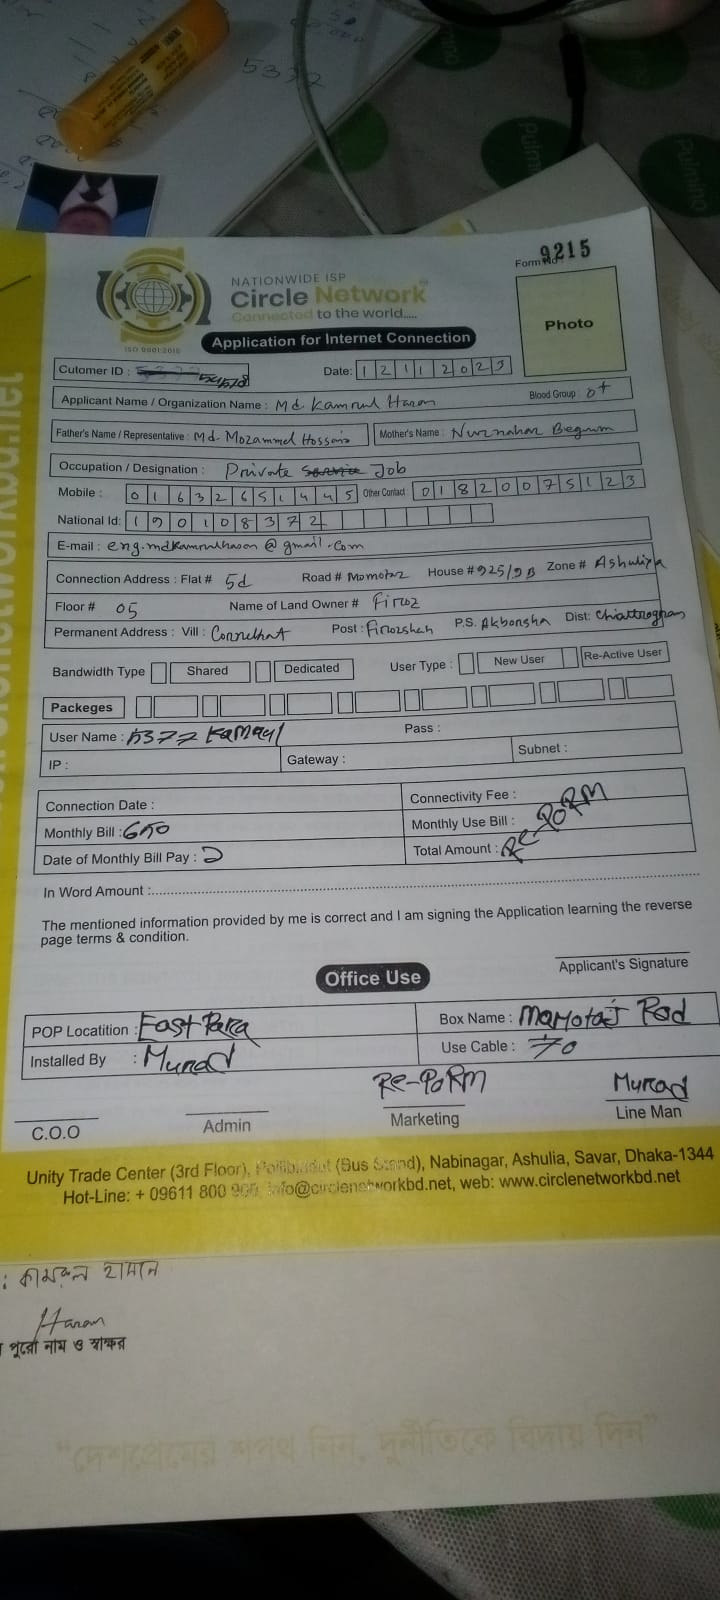 5377
Form No : 9215
NATIONWIDE ISP
Circle Network
Connected to the world.....
ISO 9001:2015
Application for Internet Connection
Photo
Cutomer ID :
Date: 12112023
Applicant Name / Organization Name : Md. Kamrul Hasan Blood Group : O+
Father's Name / Representative : Md. Mozammel Hossain Mother's Name : Nurnahar Begum
Occupation / Designation : Private Job
Mobile : 01632651445 Other Contact 01820075123
National Id: 190108372
E-mail : eng.mdkamrulhasan@gmail.com
Connection Address : Flat # 5d Road # Momotaz House # 925/9B Zone # Ashulia
Floor # 05 Name of Land Owner # Firoz
Permanent Address : Vill : Post : Firozshah P.S. Akbarsha Dist: Chattogram
Bandwidth Type Shared Dedicated User Type : New User Re-Active User
Packeges
User Name : 5377 Kamrul Pass :
IP : Gateway : Subnet :
Connection Date : Connectivity Fee :
Monthly Bill : 650 Monthly Use Bill :
Date of Monthly Bill Pay : 2 Total Amount : Re-PoRM
In Word Amount :
The mentioned information provided by me is correct and I am signing the Application learning the reverse
page terms & condition.
Applicant's Signature
Office Use
POP Locatition : East Para Box Name : Mamotaj Rod
Installed By : Murad Use Cable : 70
Re-PoRM Murad
C.O.O Admin Marketing Line Man
Unity Trade Center (3rd Floor), Pollibiddut (Bus Stand), Nabinagar, Ashulia, Savar, Dhaka-1344
Hot-Line: + 09611 800 900, info@circlenetworkbd.net, web: www.circlenetworkbd.net
: কামরুল হাসান
Hasan
পুরো নাম ও স্বাক্ষর
“দেশপ্রেমের শপথ নিন, দুর্নীতিকে বিদায় দিন”